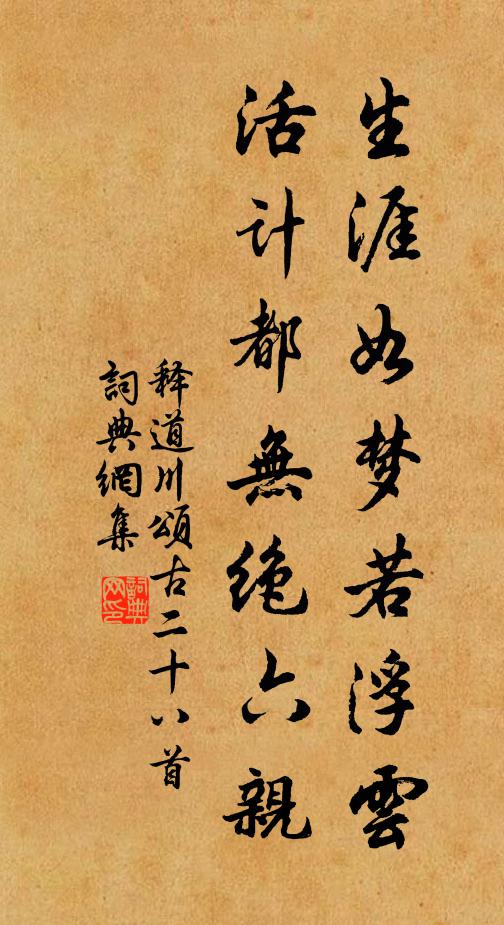 生涯如梦若浮雲
活计都無绝六親
释道川頌古二十八首
詞典網集
詞典网印